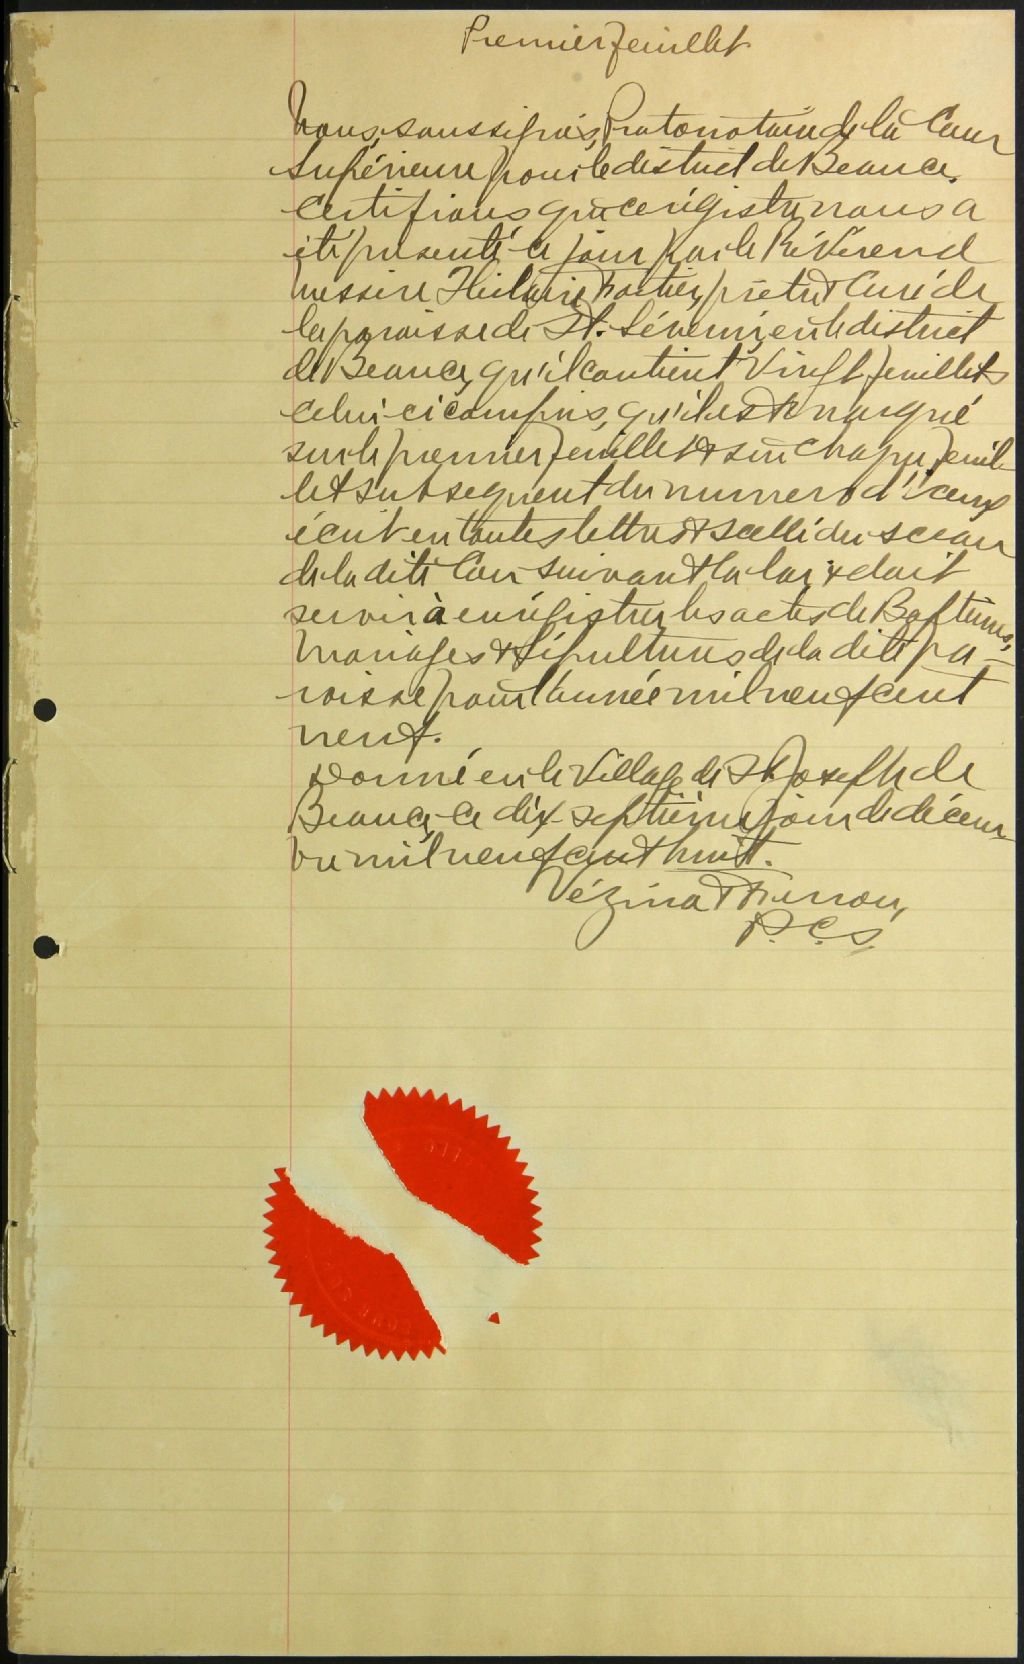 Premier feuillet
Nous, soussignés, Protonotaire de la Cour
Supérieure pour le district de Beauce,
Certifions que ce régistre nous a
été présenté ce jour par le Révérend
Messire Hilaire Fortier, prêtre & Curé de
la paroisse de St. Séverin, en le district
de Beauce, qu'il contient Vingt feuillets
celui-ci compris, qu'il est marqué
sur le premier feuillet & sur chaque feuil-
let subsequent du numero d'iceux
écrit en toutes lettres & scellé du sceau
de la dite Cour suivant la loi & doit
servir à enrégistrer les actes de Baptêmes,
Mariages & Sépultures de la dite pa-
roisse pour l'année mil neuf cent
neuf.
Donné en le Village de St Joseph de
Beauce, ce dix-septième jour de décem-
bre mil neuf cent huit.
Vézina &
P.C.S.